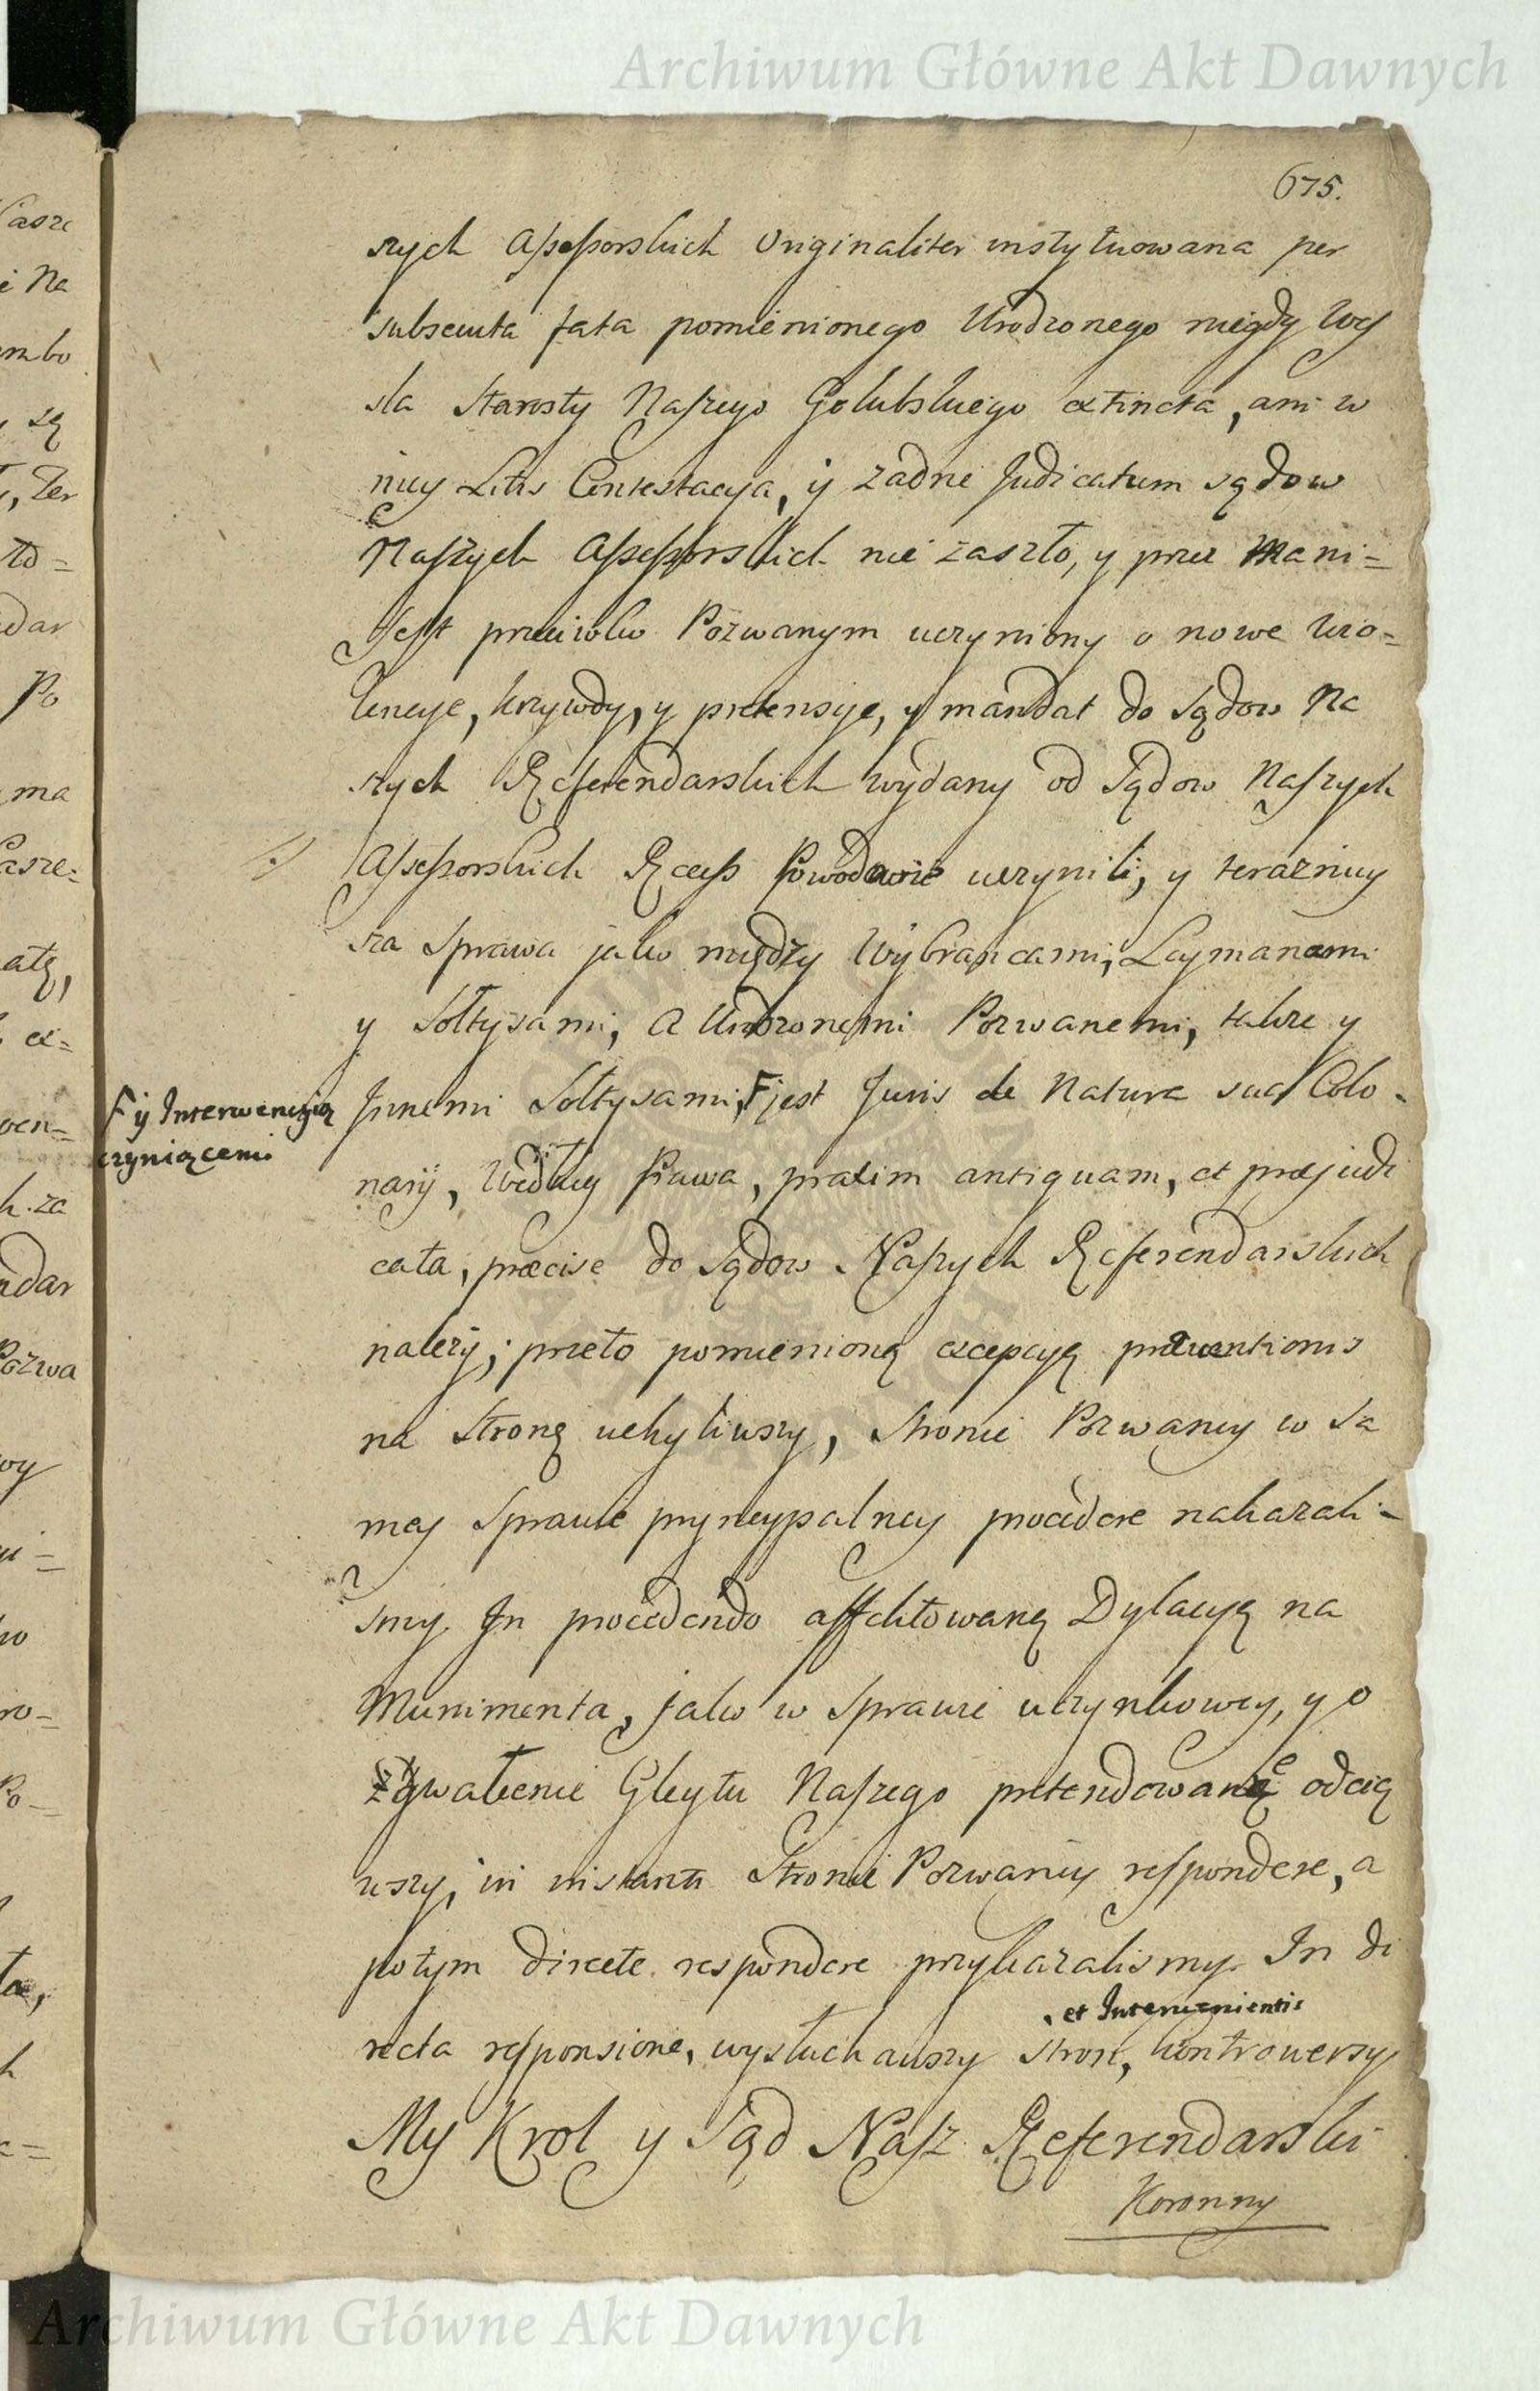 Archiwum Główne Akt Dawnych
675.
szych Assessorskich Originaliter instytuowana per
subsecuta fata pomienionego Urodzonego niegdy Wey
sla Starosty Naszego Golubskiego extincta, ani w
niey Litis Contestacya, y zadne Judicatum sądow
Naszych Assessorskich nie zaszło, y przez Mani=
fest przeciwko Pozwanym uczyniony o nowe wio=
lencye, krzywdy, y pretensye, y mandat do Sądow Na
szych Referendarskich wydany od Sądow Naszych
Assessorskich Recess Powodowie uczynili, y terazniey
sza Sprawa jako między Wybrancami, Leymanami
y Sołtysami, a Urodzonemi Pozwanemi, takze y
Innemi Sołtysami, F jest Juris de Natura sua Colo-
F y Interwencyią
czyniącemi
narij, Według Prawa, praxim antiquam, et præjudi
cata, præcise do Sądow Naszych Referendarskich
nalezy; przeto pomienioną excepcyą præventionis
na Stronę uchyliwszy, Stronie Pozwaney w Sa
mey Sprawie pryncypalney procedere nakazali-
smy. In procedendo affektowaną Dylacyą na
Munimenta, jako w Sprawie uczynkowey, y o
zgwałcenie Gleytu Naszego pretendowane odcią
wszy, in instanti Stronie Pozwaney respondere, a
potym directe respondere przykazalismy. In di
recta responsione, wysłuchawszy Stron, kontrowersy
, et Intervenientis
My Krol y Sąd Nasz Referendarski
Koronny
Archiwum Główne Akt Dawnych